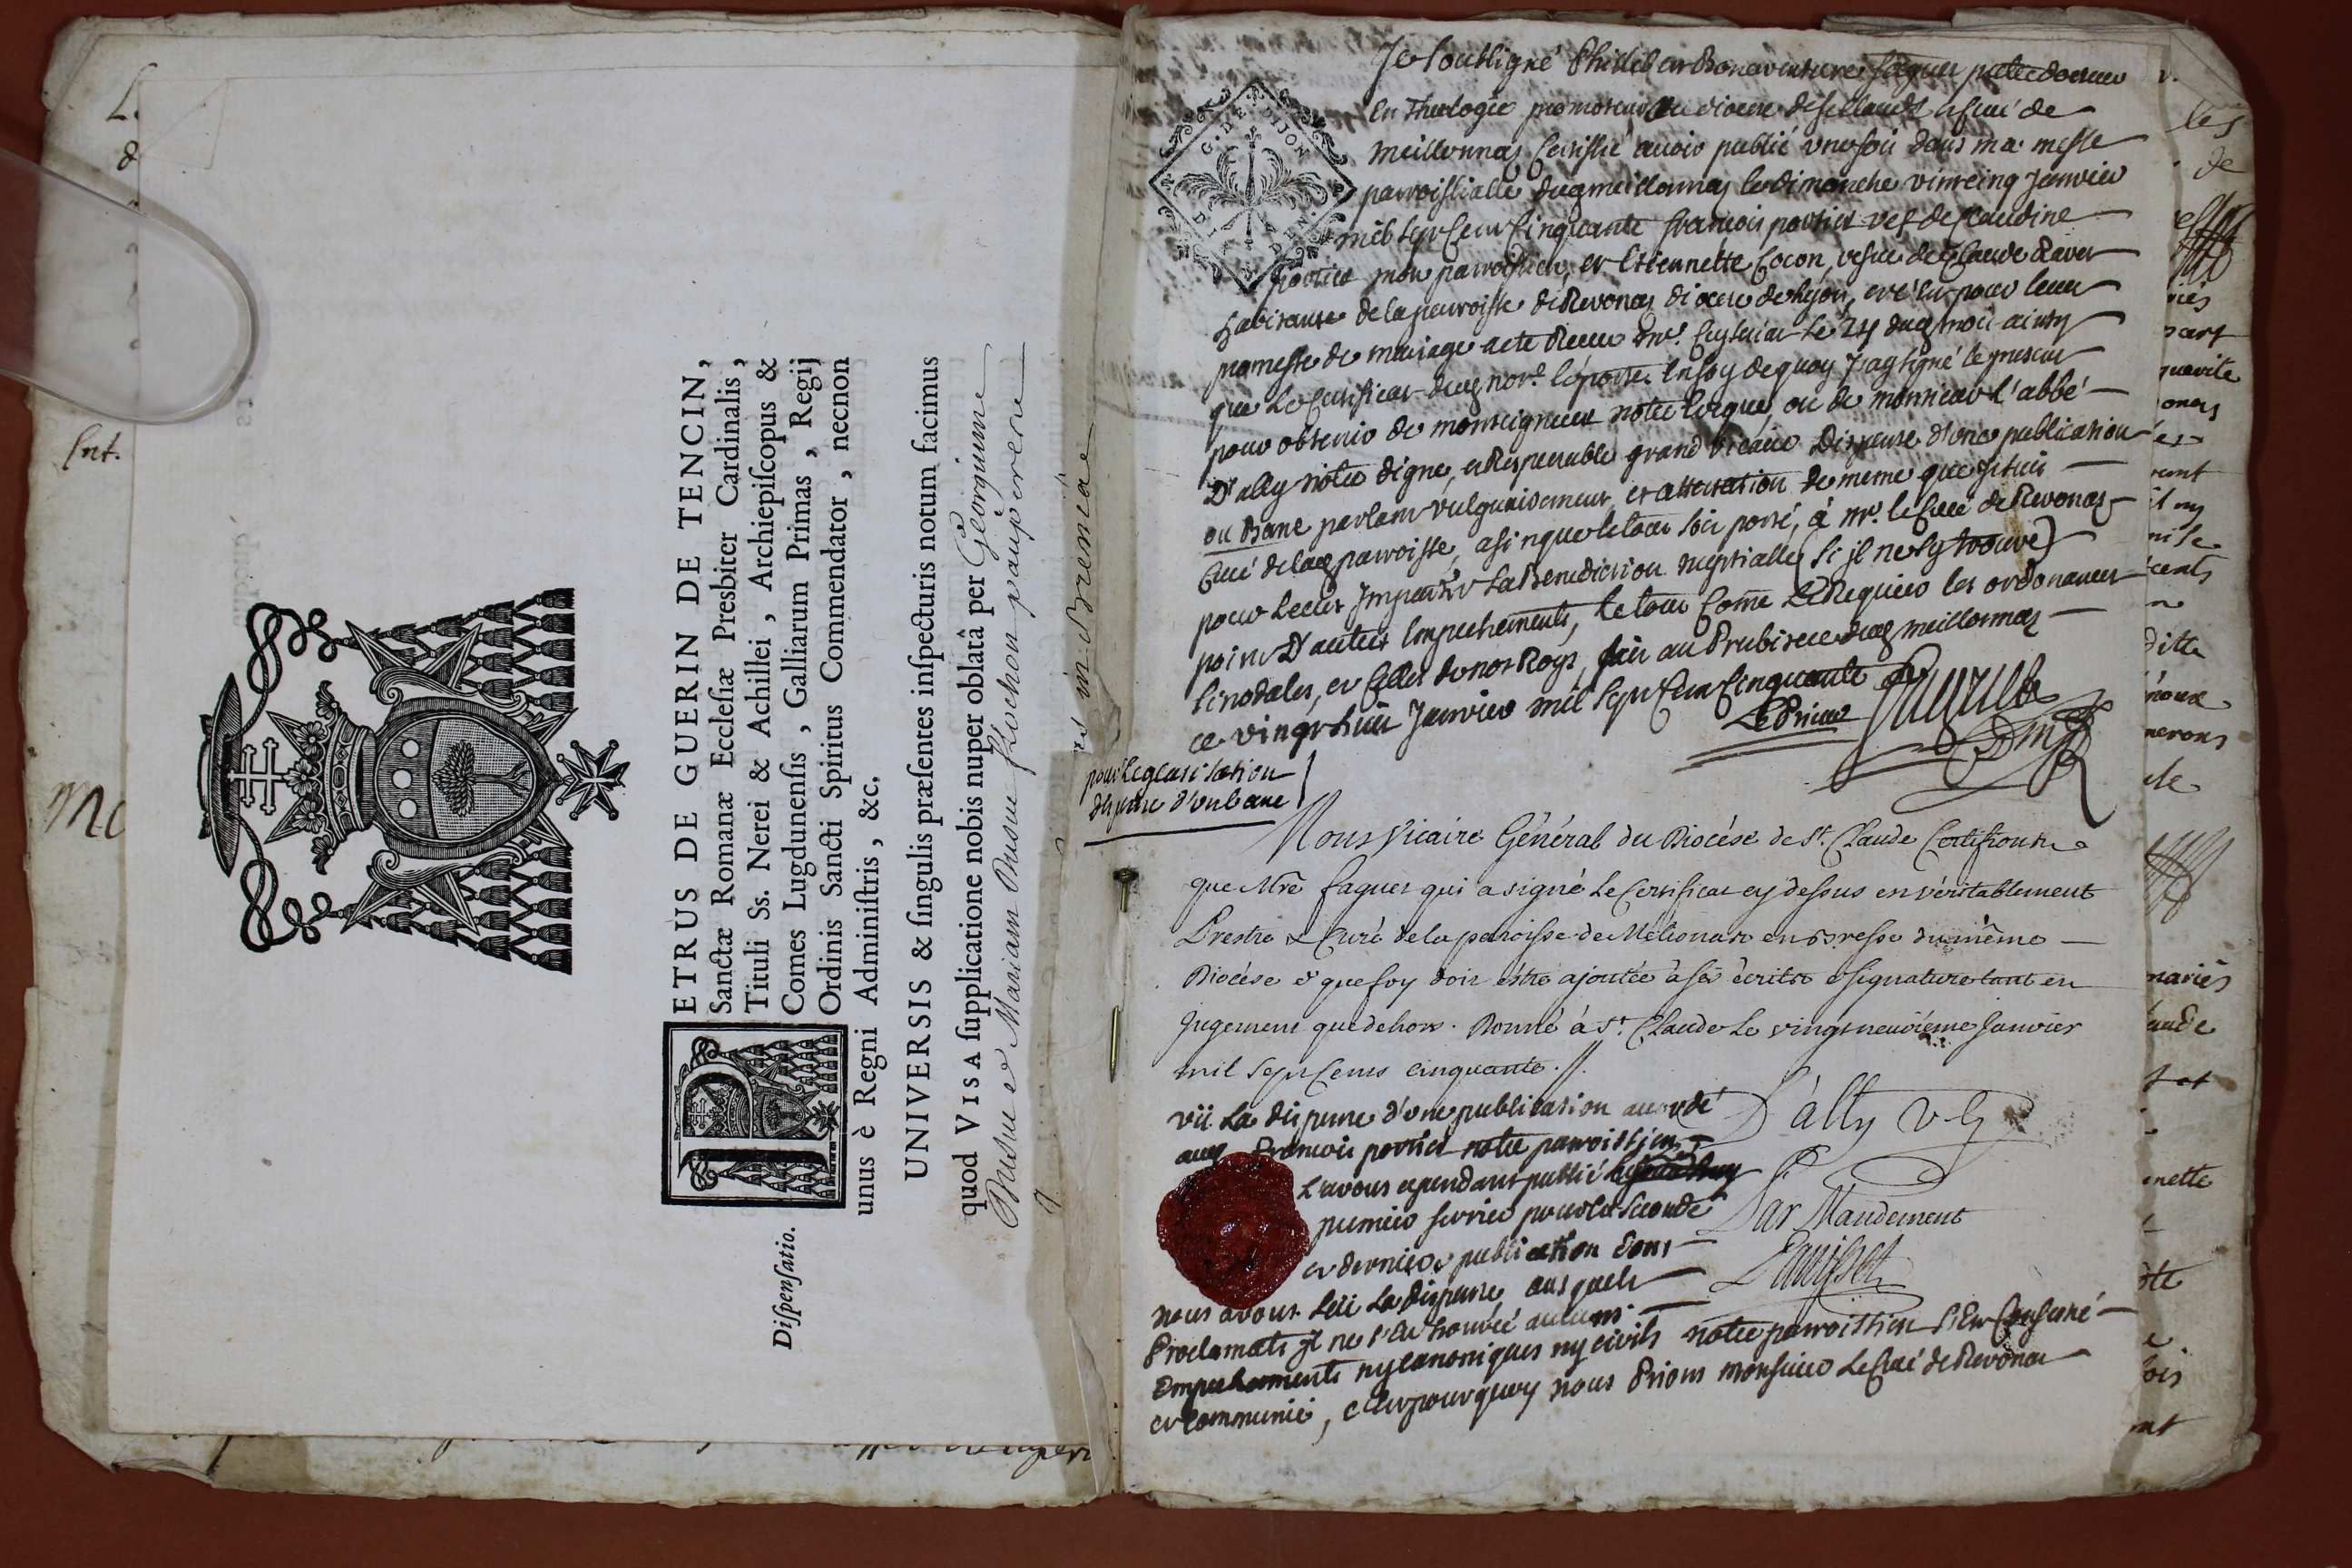 Dispensatio.
PETRUS DE GUERIN DE TENCIN,
Sanctæ Romanæ Ecclesiæ Presbiter Cardinalis,
Tituli Ss. Nerei & Achillei, Archiepiscopus &
Comes Lugdunensis, Galliarum Primas, Regij
Ordinis Sancti Spiritus Commendator, necnon
unus è Regni Administris, &c.
UNIVERSIS & singulis præsentes inspecturis notum facimus
quod VISA supplicatione nobis nuper oblatâ per Georgium
et Mariam pauperes
G. DE DIJON
Je soubsigné Philibert Bonaventure faguet pretre docteur
En Theologie promoteur du diocese de st Claude et curé de
meillonnas Certifie avoir publié une foi dans ma messe
parroissialle dud meillonnas le dimanche vintcinq Janvier
mil sept cent Cinquante francois portier vef de Claudine
portier mon parroissien, et Etiennette Cocon, vefue de Claude Ravet
habitante de la parroisse de Revonas diocese de Lyon, et ce pour leur
promesse de mariage acte Receu le 24 dud moi ainsy
que le Certificat dud no.re le porte. En foy de quoy J'ay signé le present
pour obtenir de monseigneur notre Eveque, ou de monsieur l'abbé
D'ally notre digne, et Respectable grand vicaire Dispense d'une publication
ou Bane parlant vulgairement, et attestation de meme que je suis
Curé de lad parroisse, afin que le tout soit porté, à mr. le Curé de Revonas
pour leur Impartir la Benediction nuptialle (si il ne sy trouve)
point D'autres Empechements, le tout Come Le Requiers les ordonances
sinodales, et Celles de nos Roys, fait au Prebitere dud meillonnas
ce vingt huit Janvier mil sept Cent Cinquante
pour Legalisation
dispense d'un bane
Nous Vicaire Général du Diocése de St. Claude Certifions
que Mre faguet qui a signé le Certificat cy dessus est véritablement
Prestre & Curé de la paroisse de Melionas en Bresse du même
Diocése & que foy doit être ajoutée à ses écrits & signature tant en
jugement que dehors. Donné à St. Claude Le vingt neuvieme Janvier
mil sept Cents cinquante.
D'ally v. g.
Par Mandement
vü La dispense d'une publication accordé
aud francois portier notre parroissien
L'avons cependant publié
premier fevrier pour la seconde
et derniere publication dont
nous avons leü La dispense, ausquels
Proclamats Il ne s'est trouvé aucuns
Empechements ny canoniques ny civils notre parroissien s'est Confessé
et Communié, c'est pourquoy nous Prions monsieur Le Curé de Revonas